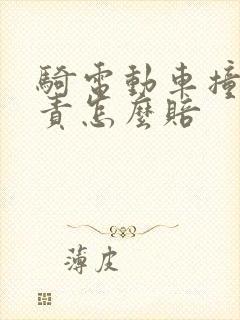 騎電動車撞
責怎麼賠
薄皮